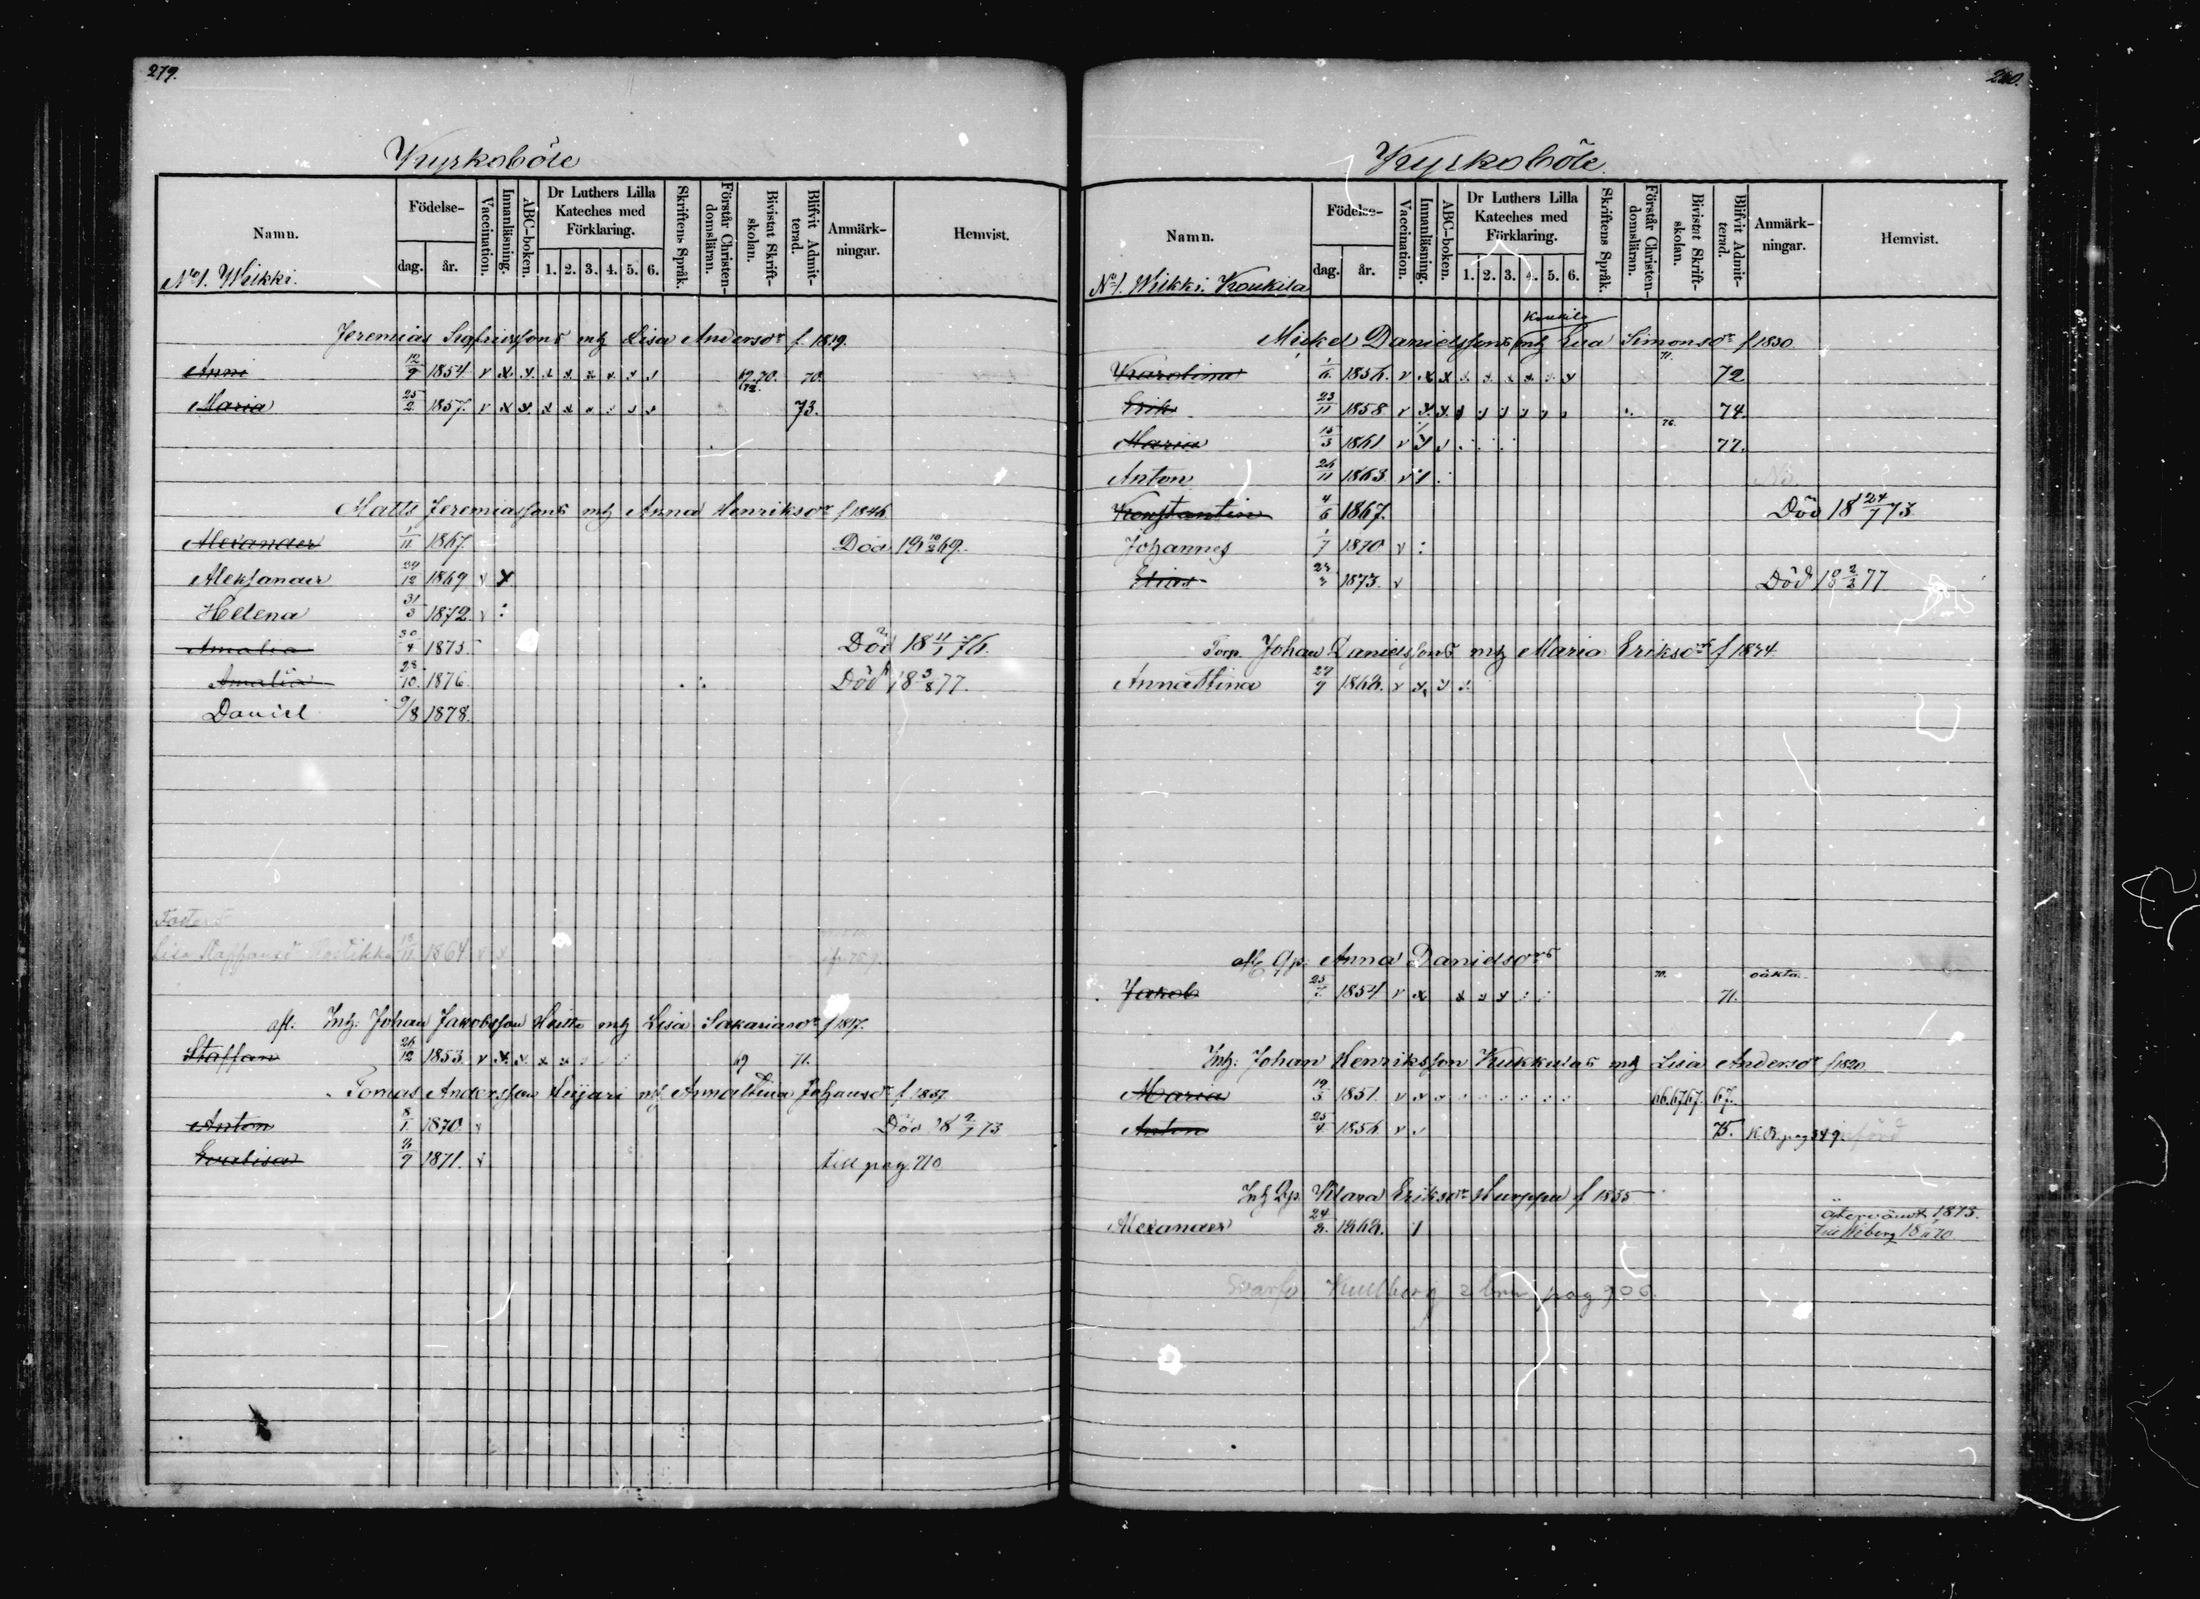 279.
Kyrkoböle
Namn. Födelse- dag. år. Vaccination. Innanläsning. ABC-boken. Dr Luthers Lilla Kateches med Förklaring. 1. 2. 3. 4. 5. 6. Skriftens Språk. Förstår Christendomsläran. Bivistat Skriftskolan. Blifvit Admitterad. Anmärkningar. Hemvist.
No 1. Wiikki.
Jeremias Sigfridssons mh Lisa Andersdr f. 1819.
Anni 12/9 1854 v x. x. x x. x x. x 1 69.70. 72. 70.
Maria 25/2 1857. v x x. x x 73.
Matts Jeremiassons mh Anna Henriksdr f 1846
Alexander 1/11 1867. Död 18 10/2 69.
Aleksander 29/12 1869 v x
Helena 31/3 1872. v :
Amalia 30/4 1875 Död 18 11/1 76.
Amalia 28/10 1876 Död 18 3/8 77.
Daniel 9/8 1878.
1864. v x
afl. Inh: Johan Jakobsson mh Lisa Sakariasdr f 1817.
Staffan 26/12 1853. v x. x. x x 69 71.
Tomas Andersson mh Annastina Johansdr f 1837
Anton 8/1 1870 v Död 18 2/1 73
Evalisa 1871. v till pag. 710
280.
Kyrkoböle.
Namn. Födelse- dag. år. Vaccination. Innanläsning. ABC-boken. Dr Luthers Lilla Kateches med Förklaring. 1. 2. 3. 4. 5. 6. Skriftens Språk. Förstår Christendomsläran. Bivistat Skriftskolan. Blifvit Admitterad. Anmärkningar. Hemvist.
No 1. Wiikki. Koukila
Koukila
Mickel Danielssons mh Eva Simonsdr f 1830.
Karolina 1/6 1856. v x x 71. 72
Erik 23/11 1858 v x. x. 74.
Maria 15/3 1861 v x 76. 77.
Anton 26/11 1863. v 1
Konstantin 4/6 1867. Död 18 24/7 73
Johannes 1/7 1870 v :
Elias 1873. v Död 18 2/2 77
Torp. Johan Danielssons mh Maria Eriksdr f 1834
Annastina 29/9 1862. v x x
afl. Qp: Anna Danielsdrs
Jakob 25/7 1854 v x x x x 70. 71. oäkta.
Inh: Johan Henriksson Kukkulas mh Lisa Andersdr f 1820
Maria 19/3 1851. v x 66.67.67. 67.
Anton 25/4 1856. v 75. K.B. pag 349
Inh Qp. Klara Eriksdr Hurppu f 1835
Alexander 24/2 1862. 1 återvändt 1873.
Till Wiborg 18 1/11 70
Kullberg pag 906.